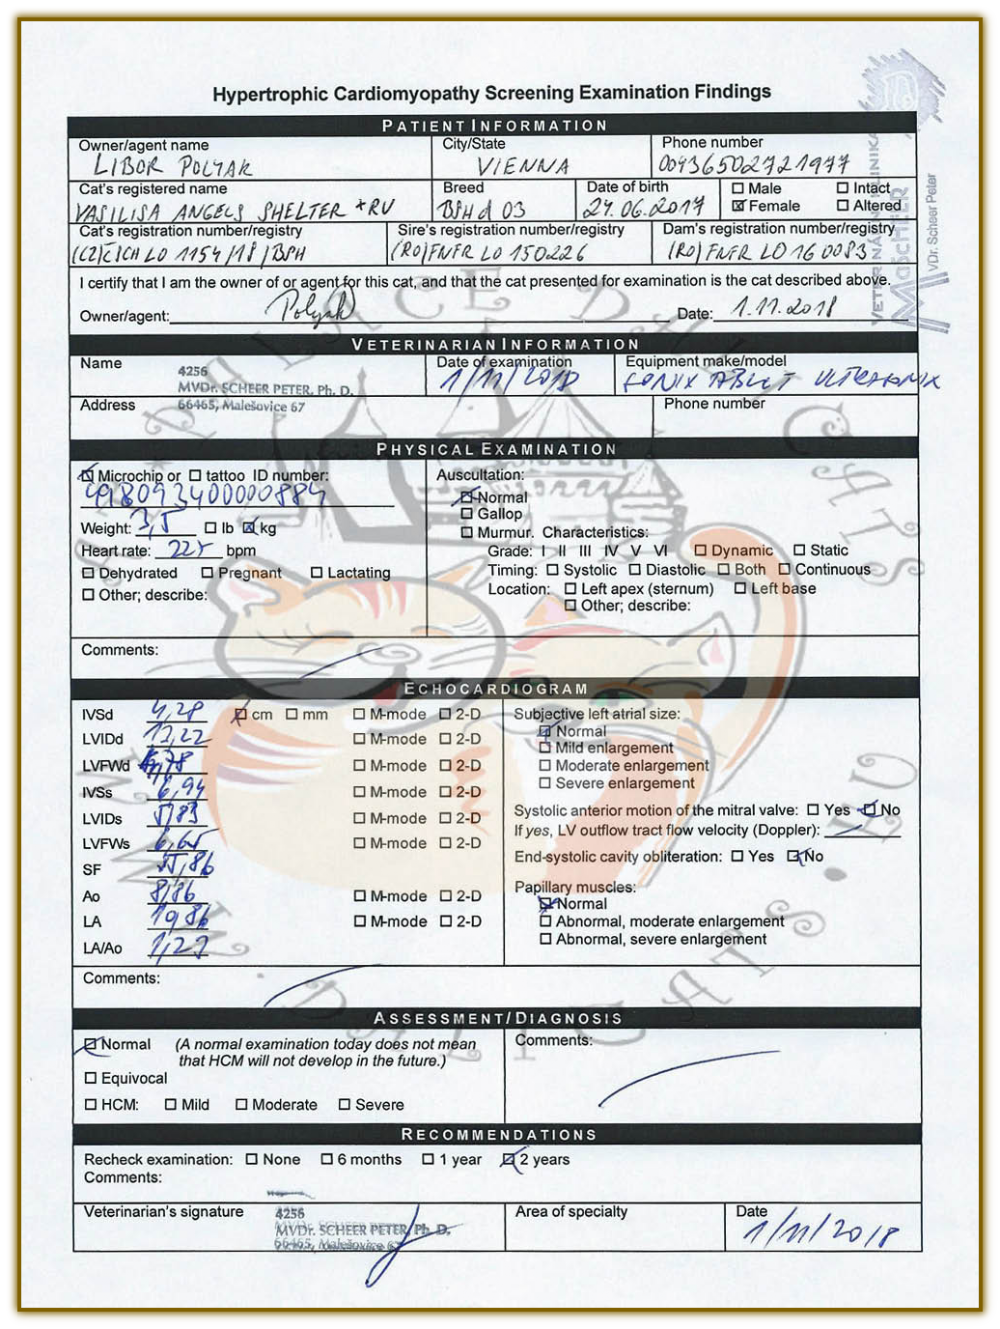 Hypertrophic Cardiomyopathy Screening Examination Findings
PATIENT INFORMATION
Owner/agent name City/State Phone number
LIBOR POLYAK VIENNA 00436502721977
Cat's registered name Breed Date of birth ☐ Male ☐ Intact
VASILISA ANGELS SHELTER *RU BSH d 03 24.06.2017 ☒ Female ☐ Altered
Cat's registration number/registry Sire's registration number/registry Dam's registration number/registry
(CZ)ČICH LO 1154/18/BSH (RO)FNFR LO 150226 (RO)FNFR LO 160083
I certify that I am the owner of or agent for this cat, and that the cat presented for examination is the cat described above.
Owner/agent: Polyak Date: 1.11.2018
VETERINÁRNÍ KLINIKA
MaSCHEER
MVDr. Scheer Peter
VETERINARIAN INFORMATION
Name Date of examination Equipment make/model
4256 1/11/2018
MVDr. SCHEER PETER, Ph. D.
Address 66465, Malešovice 67 Phone number
PHYSICAL EXAMINATION
☒ Microchip or ☐ tattoo ID number: Auscultation:
☒ Normal
Weight: 3,5 ☐ lb ☒ kg ☐ Gallop
☐ Murmur. Characteristics:
Heart rate: 225 bpm Grade: I II III IV V VI ☐ Dynamic ☐ Static
☐ Dehydrated ☐ Pregnant ☐ Lactating Timing: ☐ Systolic ☐ Diastolic ☐ Both ☐ Continuous
☐ Other; describe: Location: ☐ Left apex (sternum) ☐ Left base
☐ Other; describe:
Comments:
ECHOCARDIOGRAM
IVSd 4,28 ☒ cm ☐ mm ☐ M-mode ☐ 2-D Subjective left atrial size:
☒ Normal
LVIDd 13,22 ☐ M-mode ☐ 2-D ☐ Mild enlargement
LVFWd ☐ M-mode ☐ 2-D ☐ Moderate enlargement
☐ Severe enlargement
IVSs 6,94 ☐ M-mode ☐ 2-D
LVIDs 5,83 ☐ M-mode ☐ 2-D Systolic anterior motion of the mitral valve: ☐ Yes ☒ No
If yes, LV outflow tract flow velocity (Doppler):
LVFWs 6,65 ☐ M-mode ☐ 2-D
SF 55,86 End-systolic cavity obliteration: ☐ Yes ☒ No
Ao 8,16 ☐ M-mode ☐ 2-D Papillary muscles:
☒ Normal
LA ☐ M-mode ☐ 2-D ☐ Abnormal, moderate enlargement
LA/Ao 1,27 ☐ Abnormal, severe enlargement
Comments:
ASSESSMENT/DIAGNOSIS
☒ Normal (A normal examination today does not mean Comments:
that HCM will not develop in the future.)
☐ Equivocal
☐ HCM: ☐ Mild ☐ Moderate ☐ Severe
RECOMMENDATIONS
Recheck examination: ☐ None ☐ 6 months ☐ 1 year ☒ 2 years
Comments:
Veterinarian's signature Area of specialty Date
4256
MVDr. SCHEER PETER, Ph. D. 1/11/2018
66465, Malešovice 67